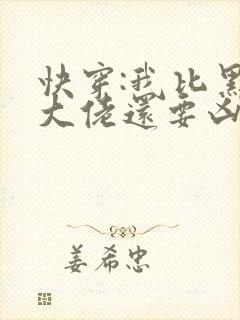 快穿:我比黑
大佬還要凶
姜希忠